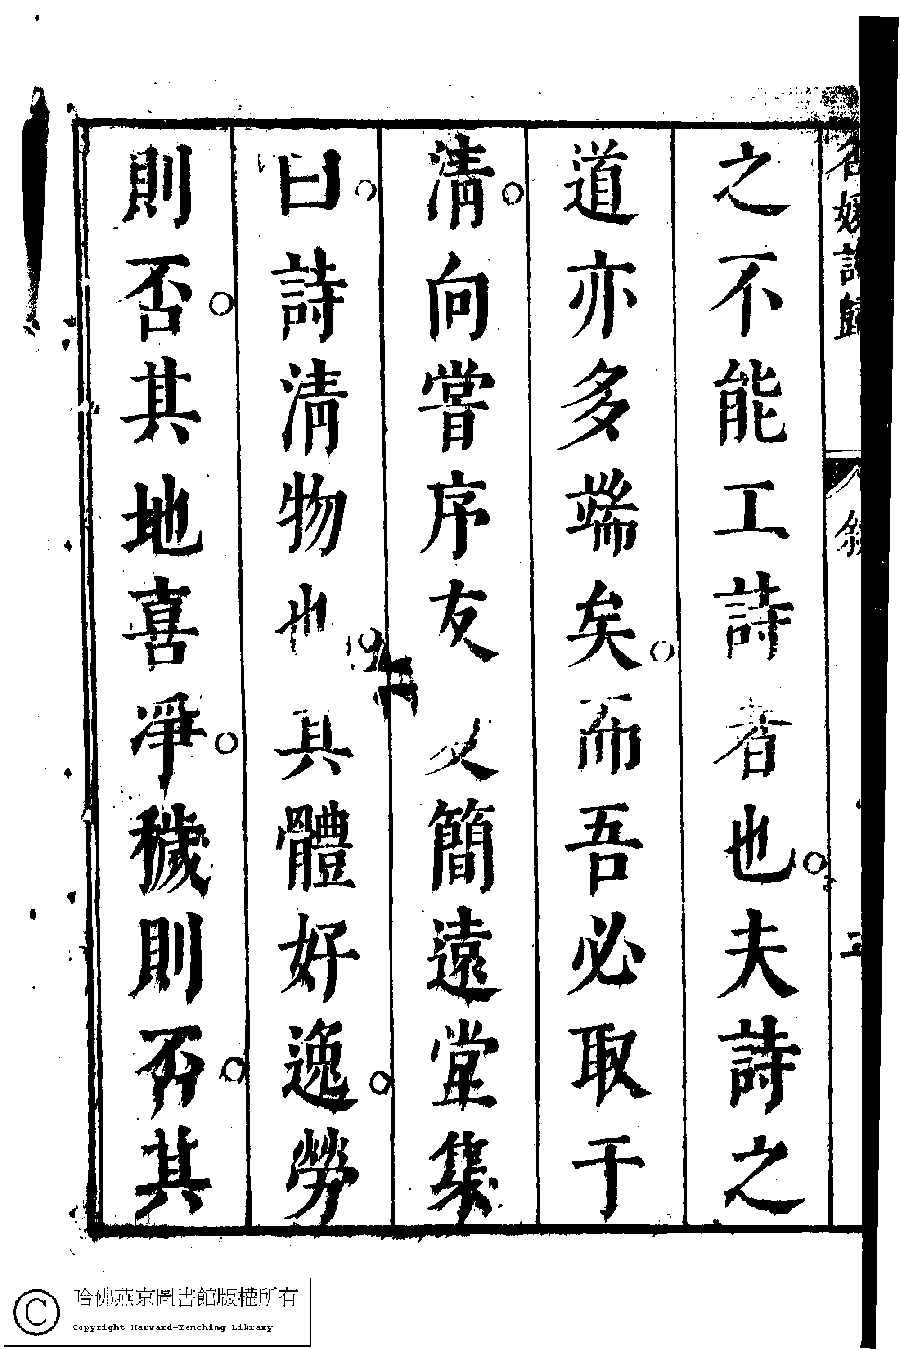 之不能工詩者也夫詩之
道亦多端矣而吾必取于
清向嘗序友夏簡遠堂集
曰詩清物也其體好逸勞
則否其地喜淨穢則否其
媛詩歸
敘
三
哈佛燕京圖書館版權所有
Copyright Harvard-Yenching Library